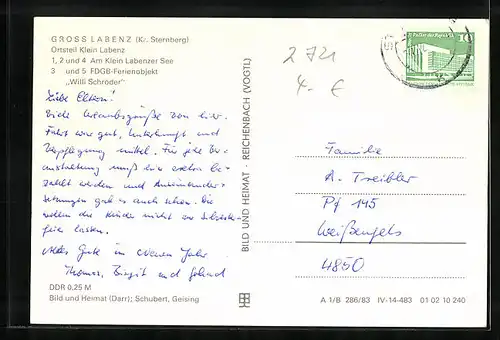 GROSS LABENZ (Kr. Sternberg)
Ortsteil Klein Labenz
1, 2 und 4 Am Klein Labenzer See
3 und 5 FDGB-Ferienobjekt
„Willi Schröder"
2721
4,- €
Liebe Eltern!
Viele Urlaubsgrüße von hier.
Fahrt war gut, Unterkunft und
Verpflegung mittel. Für jede Ver-
anstaltung muß hier extra be-
zahlt werden und Auseinander-
setzungen gab es auch schon. Sie
wollen die Kinder nicht zu Silvester
feiern lassen.
Alles Gute im Neuen Jahr
Thomas, Birgit und
Familie
A. Treibler
Pf 145
Weißenfels
4850
BILD UND HEIMAT · REICHENBACH (VOGTL)
DDR 0,25 M
Bild und Heimat (Darr); Schubert, Geising
A 1/B 286/83 IV-14-483 01 02 10 240
10